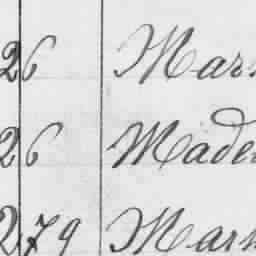 26 Mar
26 Made
279 Mar